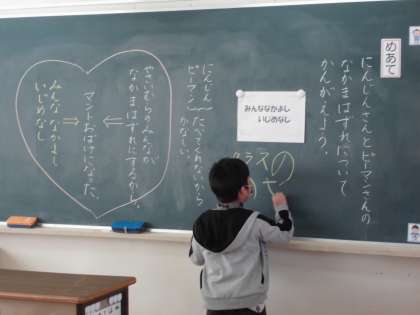 めあて
にんじんさんとピーマンさんの
なかまはずれについて
かんがえよう。
みんななかよし
いじめなし
にんじん
ピーマン
たべてくれないから
かなしい。
やさいむらのみんなが
なかまはずれにするから
マントおばけになった。
みんななかよし
いじめなし